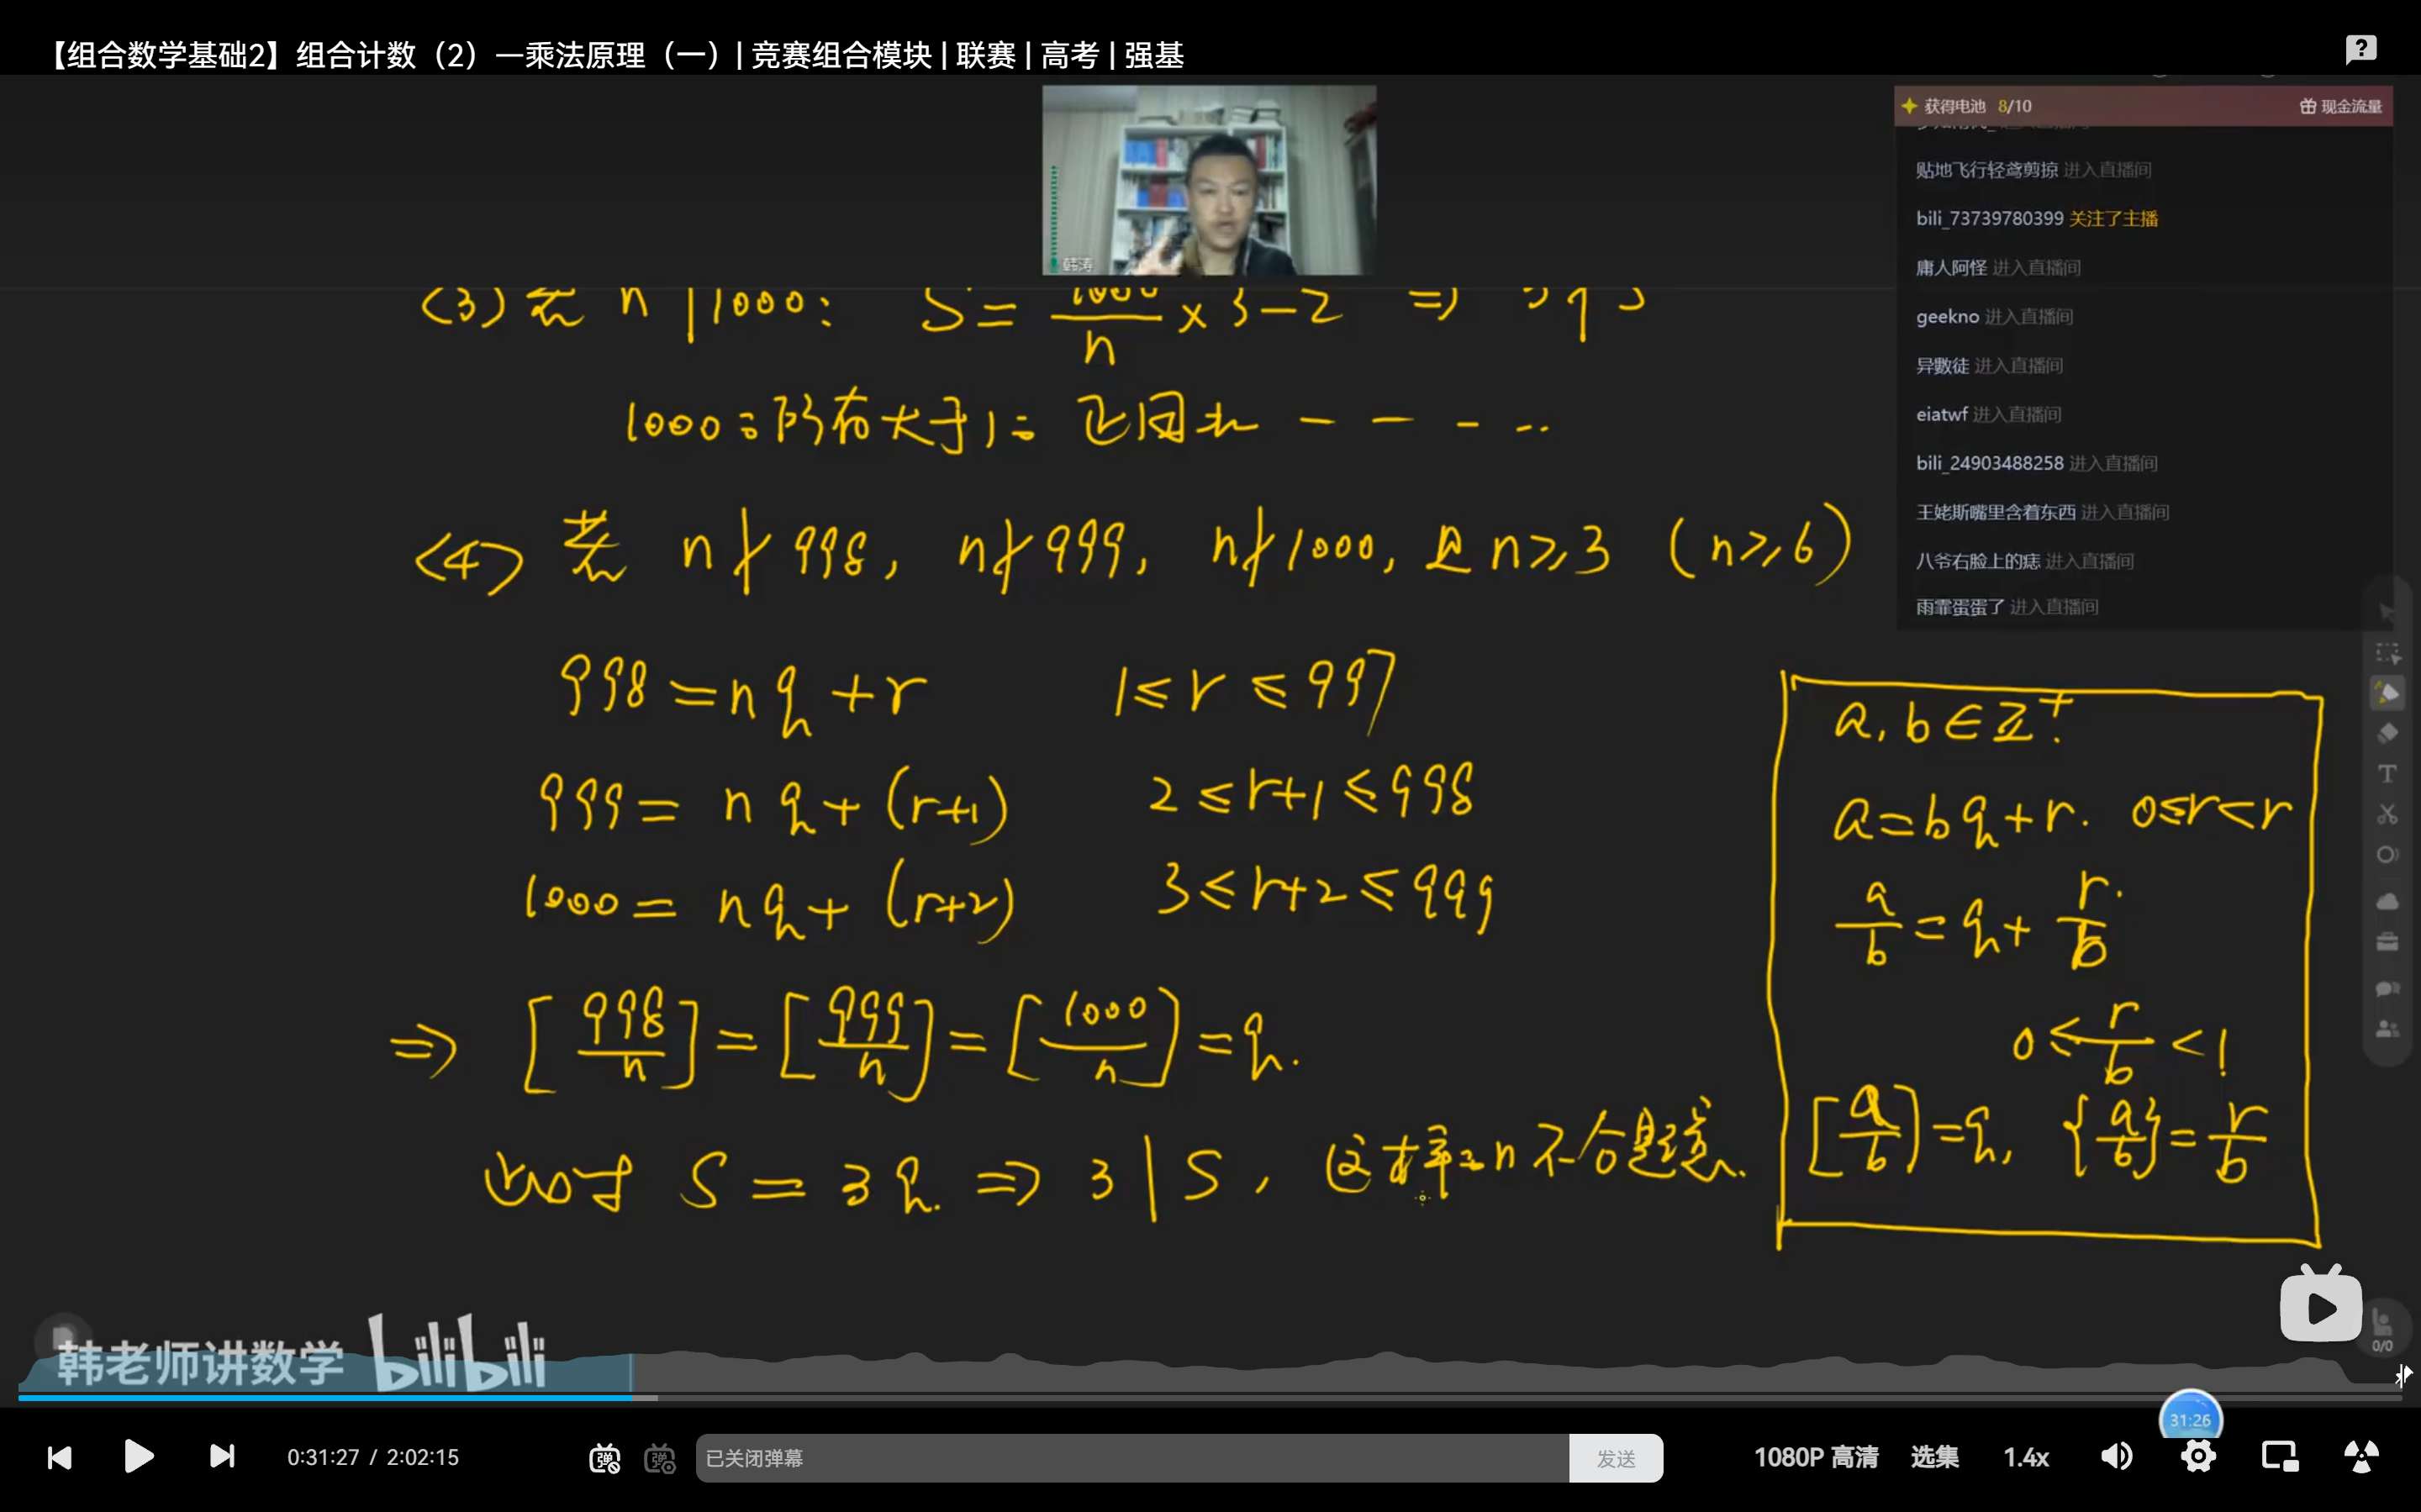 【组合数学基础2】组合计数（2）—乘法原理（一）| 竞赛组合模块 | 联赛 | 高考 | 强基
获得电池 8/10 现金流量
贴地飞行轻鸢剪掠 进入直播间
bili_73739780399 关注了主播
庸人阿怪 进入直播间
geekno 进入直播间
异數徒 进入直播间
eiatwf 进入直播间
bili_24903488258 进入直播间
王姥斯嘴里含着东西 进入直播间
八爷右脸上的痣 进入直播间
雨霏蛋蛋了 进入直播间
韩涛
(3) 若 n | 1000: S = 1000/n × 3 - 2 ⇒
1000 的 大于1 正因数 - - - ..
<4> 若 n ∤ 998, n ∤ 999, n ∤ 1000, 且 n ≥ 3 (n ≥ 6)
998 = nq + r 1 ≤ r ≤ 997
999 = nq + (r+1) 2 ≤ r+1 ≤ 998
1000 = nq + (r+2) 3 ≤ r+2 ≤ 999
⇒ [998/n] = [999/n] = [1000/n] = q.
此时 S = 3q. ⇒ 3 | S, 这样的n不合题意.
a, b ∈ Z⁺.
a = bq + r. 0 ≤ r < r
a/b = q + r/b.
0 ≤ r/b < 1
[a/b] = q, {a/b} = r/b
韩老师讲数学 bilibili
0/0
31:26
0:31:27 / 2:02:15
弹 弹 已关闭弹幕 发送 1080P 高清 选集 1.4x